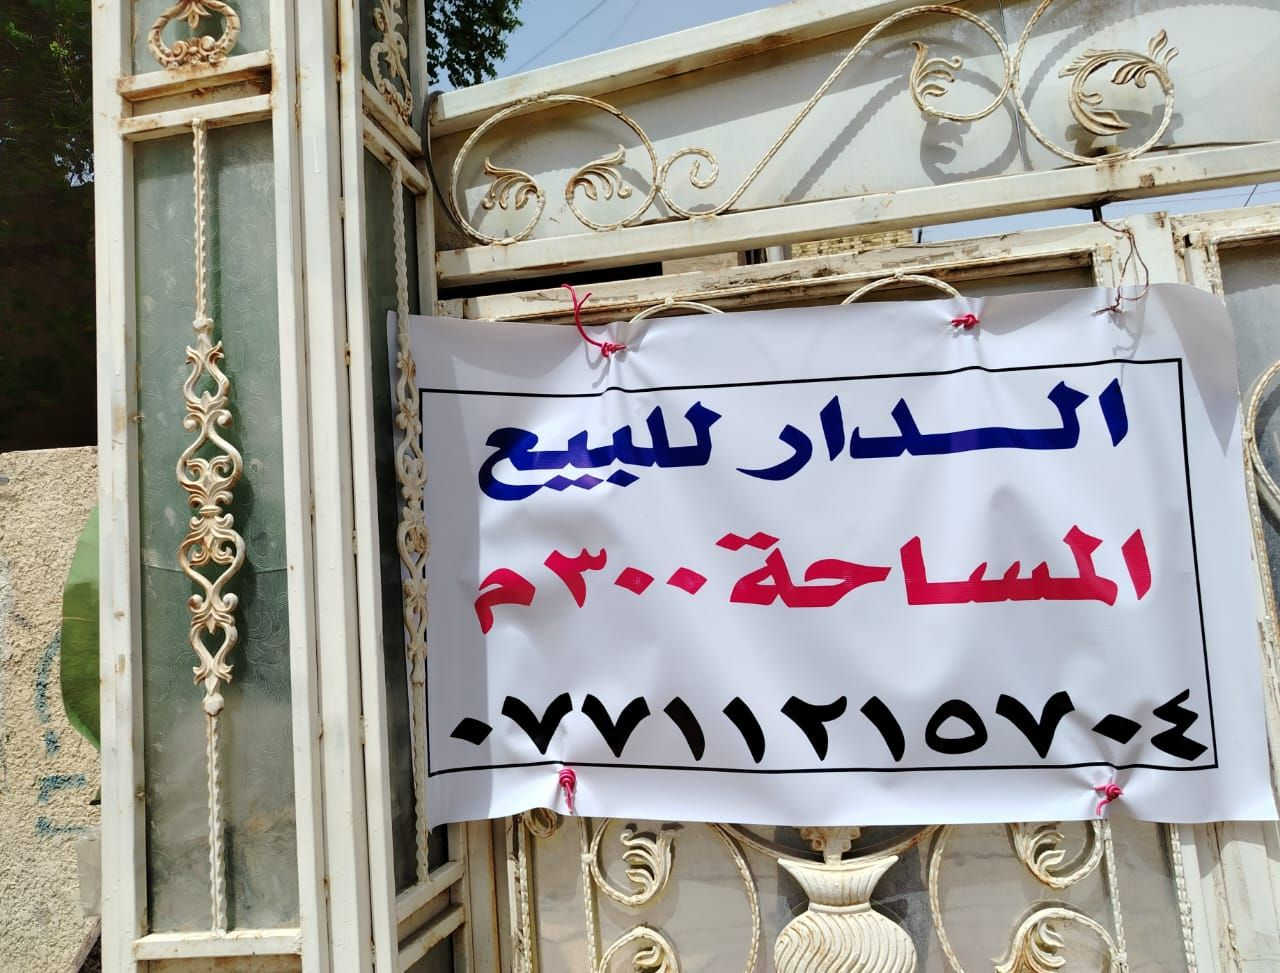 الدار للبيع
المساحة ٣٠٠م
٠٧٧١١٢١٥٧٠٤